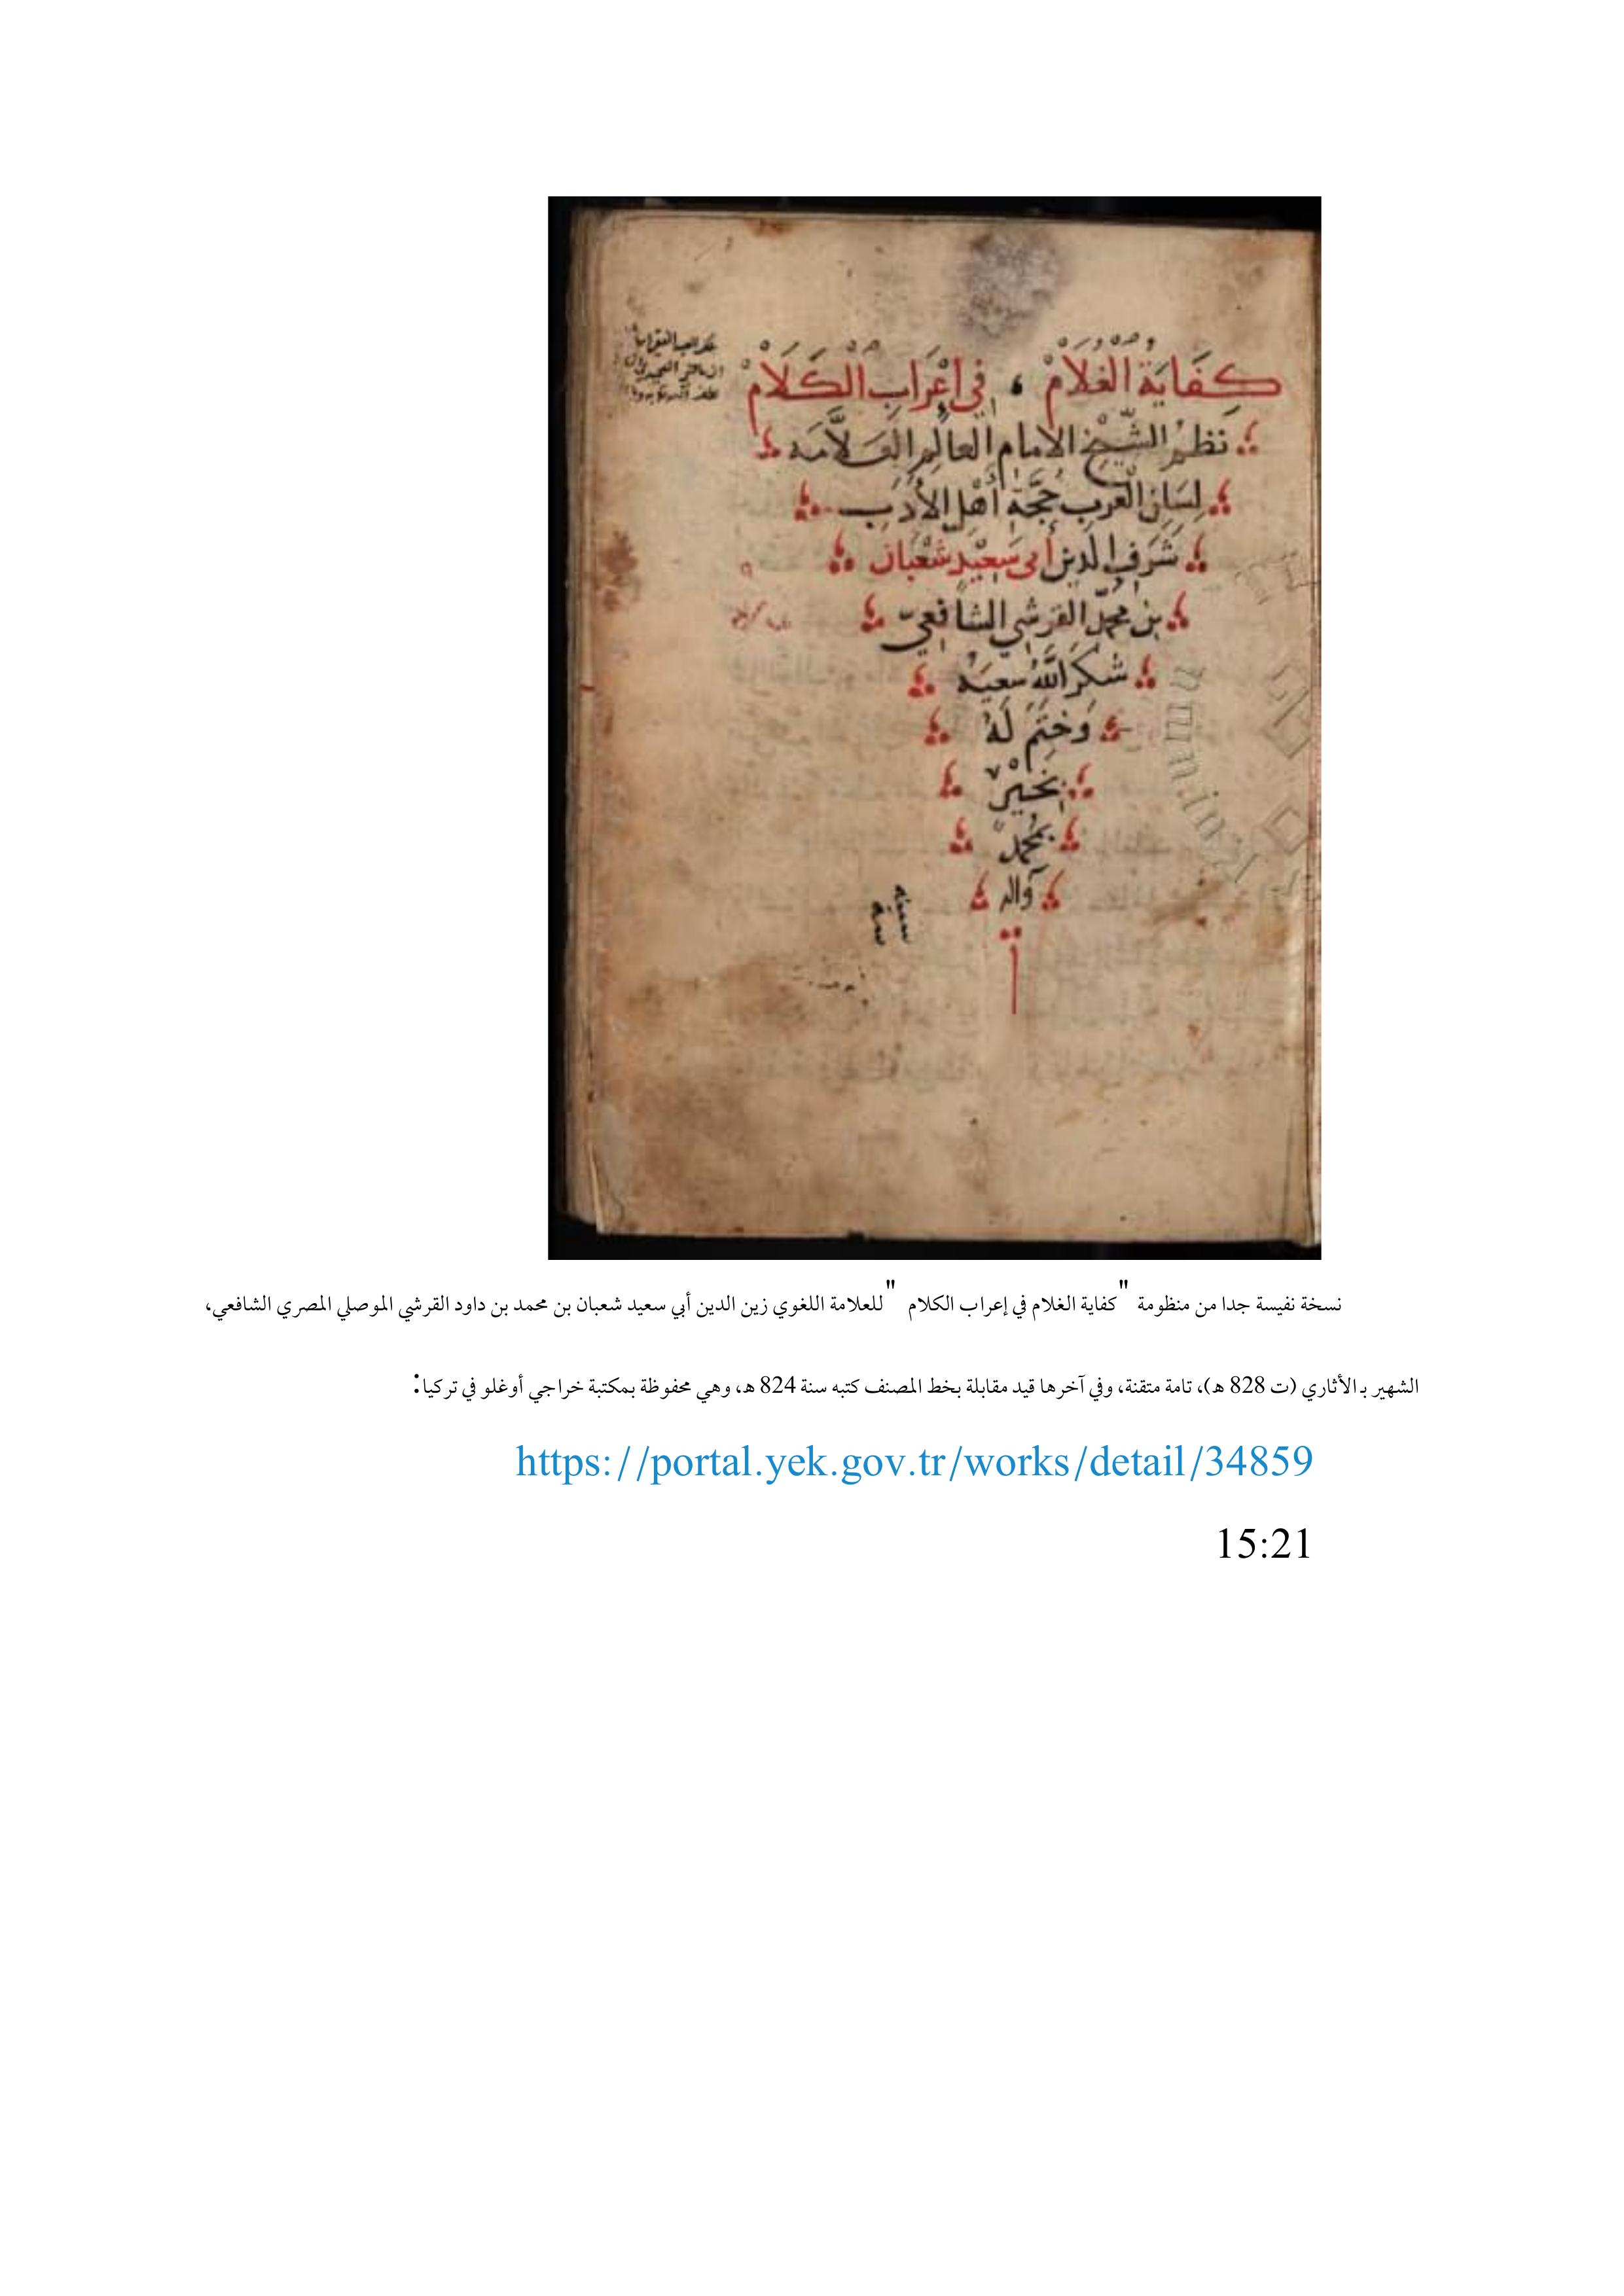 كفَايَةُ الغُلَامْ ، في إعْرَابِ الْكَلَامْ
نَظمُ الشَّيْخِ الامام العالم العَلَّامَه
لِسَانِ الْعَرَبِ حُجَّةِ أَهْلِ الأَدَبِ
شَرَفِ الدين أبي سَعِيْدٍ شَعْبَان
بن محمّد القرشي الشافعيّ
شكَرَ اللهُ سَعيَهُ
وَخَتَمَ لَهُ
بخَيْرٍ
بمُحمدٍ
وآله
نسخة نفيسة جدا من منظومة "كفاية الغلام في إعراب الكلام" للعلامة اللغوي زين الدين أبي سعيد شعبان بن محمد بن داود القرشي الموصلي المصري الشافعي،
الشهير بـ الأثاري (ت 828 هـ)، تامة متقنة، وفي آخرها قيد مقابلة بخط المصنف كتبه سنة 824 هـ، وهي محفوظة بمكتبة خراجي أوغلو في تركيا:
https://portal.yek.gov.tr/works/detail/34859
15:21